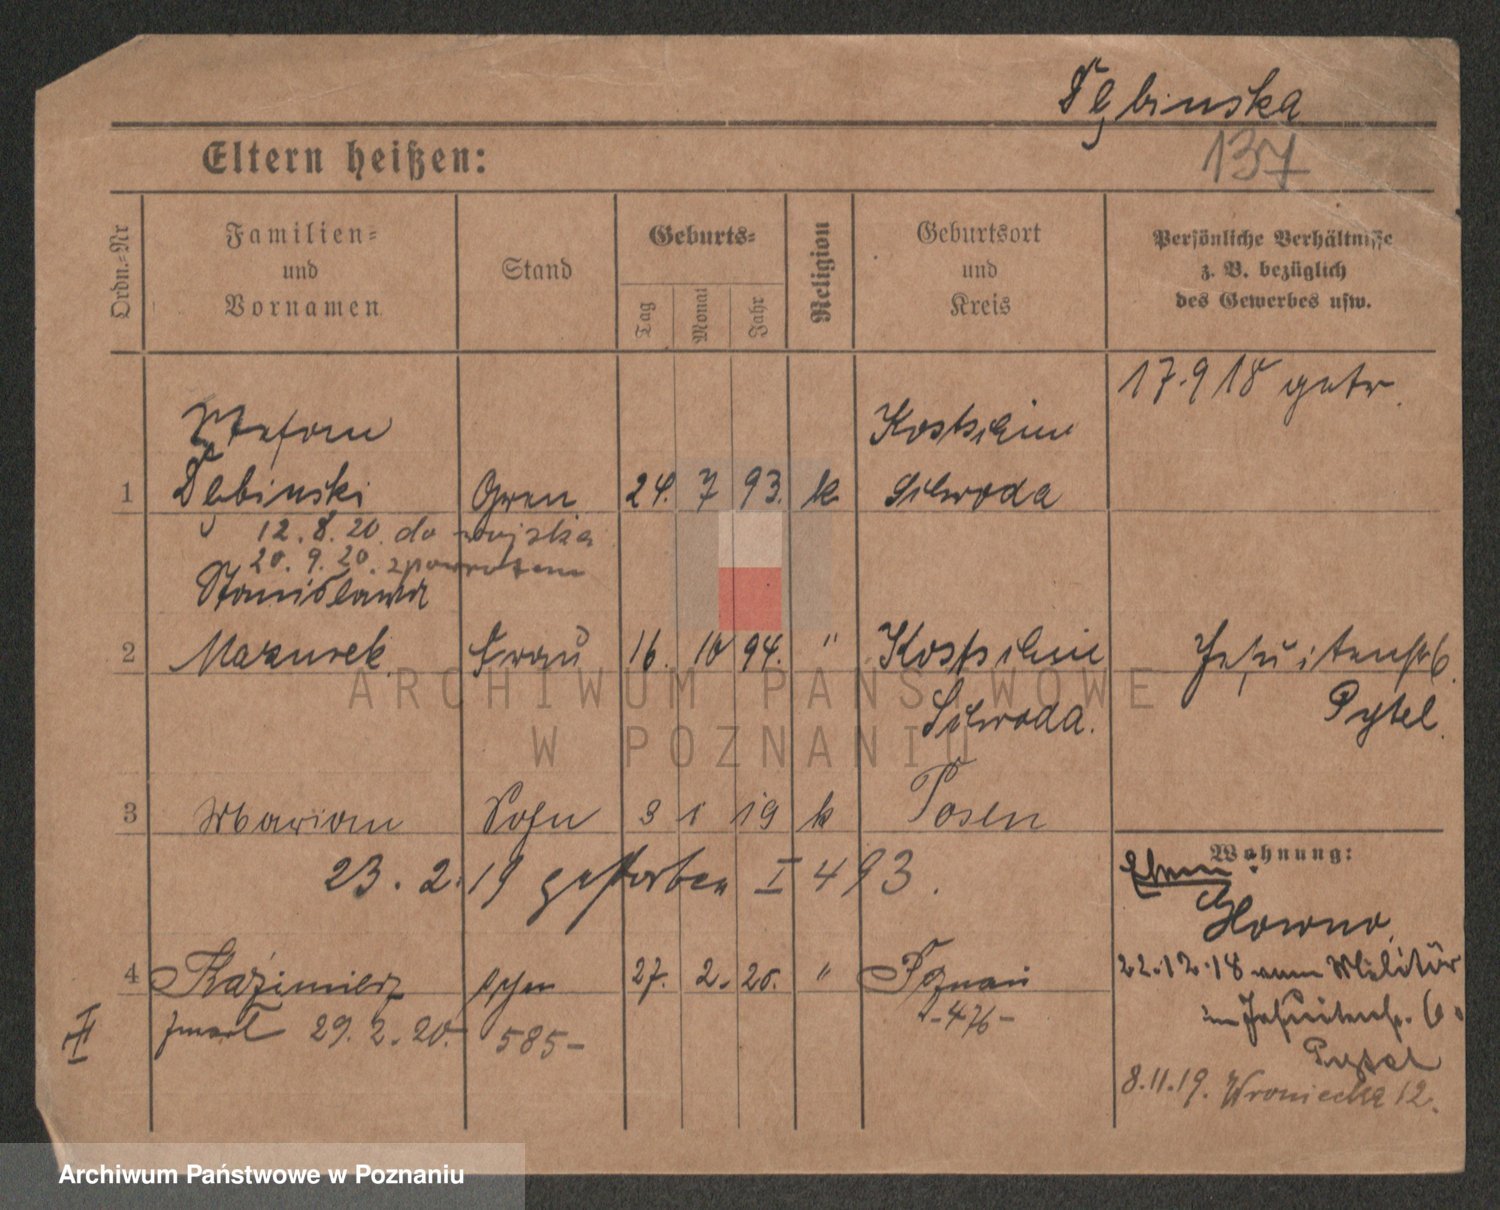 Dębinska
137
Eltern heißen:
Ordn.-Nr
Familien-
und
Vornamen
Stand
Geburts-
Tag
Monat
Jahr
Religion
Geburtsort
und
Kreis
Persönliche Verhältnisse
z. B. bezüglich
des Gewerbes usw.
17.9 18 getr.
Stefan
Kostschin
1 Dębinski Gren. 24. 7 93. k Schroda
12.8.20. do wojska
20.9.20. zpowrotem
Stanislawa
2 Mazurek Frau 16. 10 94. " Kostschin Jesuitenstr 6.
Schroda. Pytel.
3 Marian Sohn 3 1 19 k Posen
23.2.19 gestorben I 493.
Wohnung:
Ehem:
4 Kazimierz syn 27. 2. 20. " Poznań
22.12.18 vom Militär
zmarł 29.2.20. 585- -476-
II
in Jesuitenstr. 6.
Pytel
8.11.19. Wroniecka 12.
ARCHIWUM PAŃSTWOWE
W POZNANIU
Archiwum Państwowe w Poznaniu